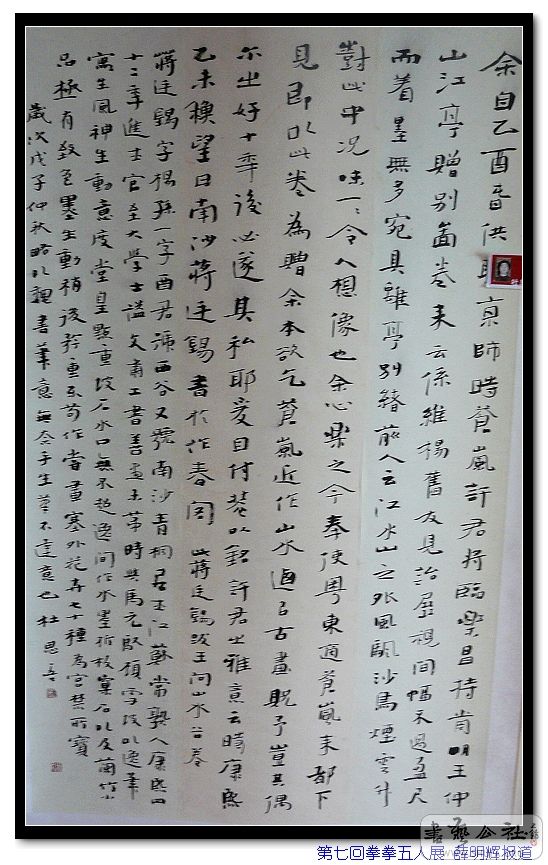 余自乙酉春供职京师时蒼嵐許君将臨樂昌持尚明王仲
山江亭贈别啚卷来云係維楊舊友見詒屈視间幅不過盈尺
而着墨無多宛具離亭别緒前人云江水山之外風颿沙鳥煙雲竹
對此中况味一一令人想像也余心樂之今奉使粤東適蒼嵐来都下
見即以此卷為贈余本欲乞蒼嵐近作山水適以古畫貺予豈其偶
尔出好十年後必遂其私耶爰目付裝以銘許君之雅意云時康熙
乙未穐望日南沙蔣廷錫書於作春阁 此蔣廷錫跋王问山水长卷
蔣廷錫字揚孫一字酉君號西谷又號南沙青桐居士江蘇常熟人康熙四
十二年進士官至大學士謚文肅工書善畫士苐時與馬元馭顧雪坡以逸筆
寫生風神生動意度堂皇點重坡石水口無不超逸间作水墨折枝窠石以及蘭竹小
品極有致色墨生動稍後矜重不苟作嘗畫塞外花卉七十種為宫禁所寶
歲次戊子仲秋略以親書筆意無奈手生草不達意也 杜思
書藝公社
第七回拳拳五人展 薛明辉报道